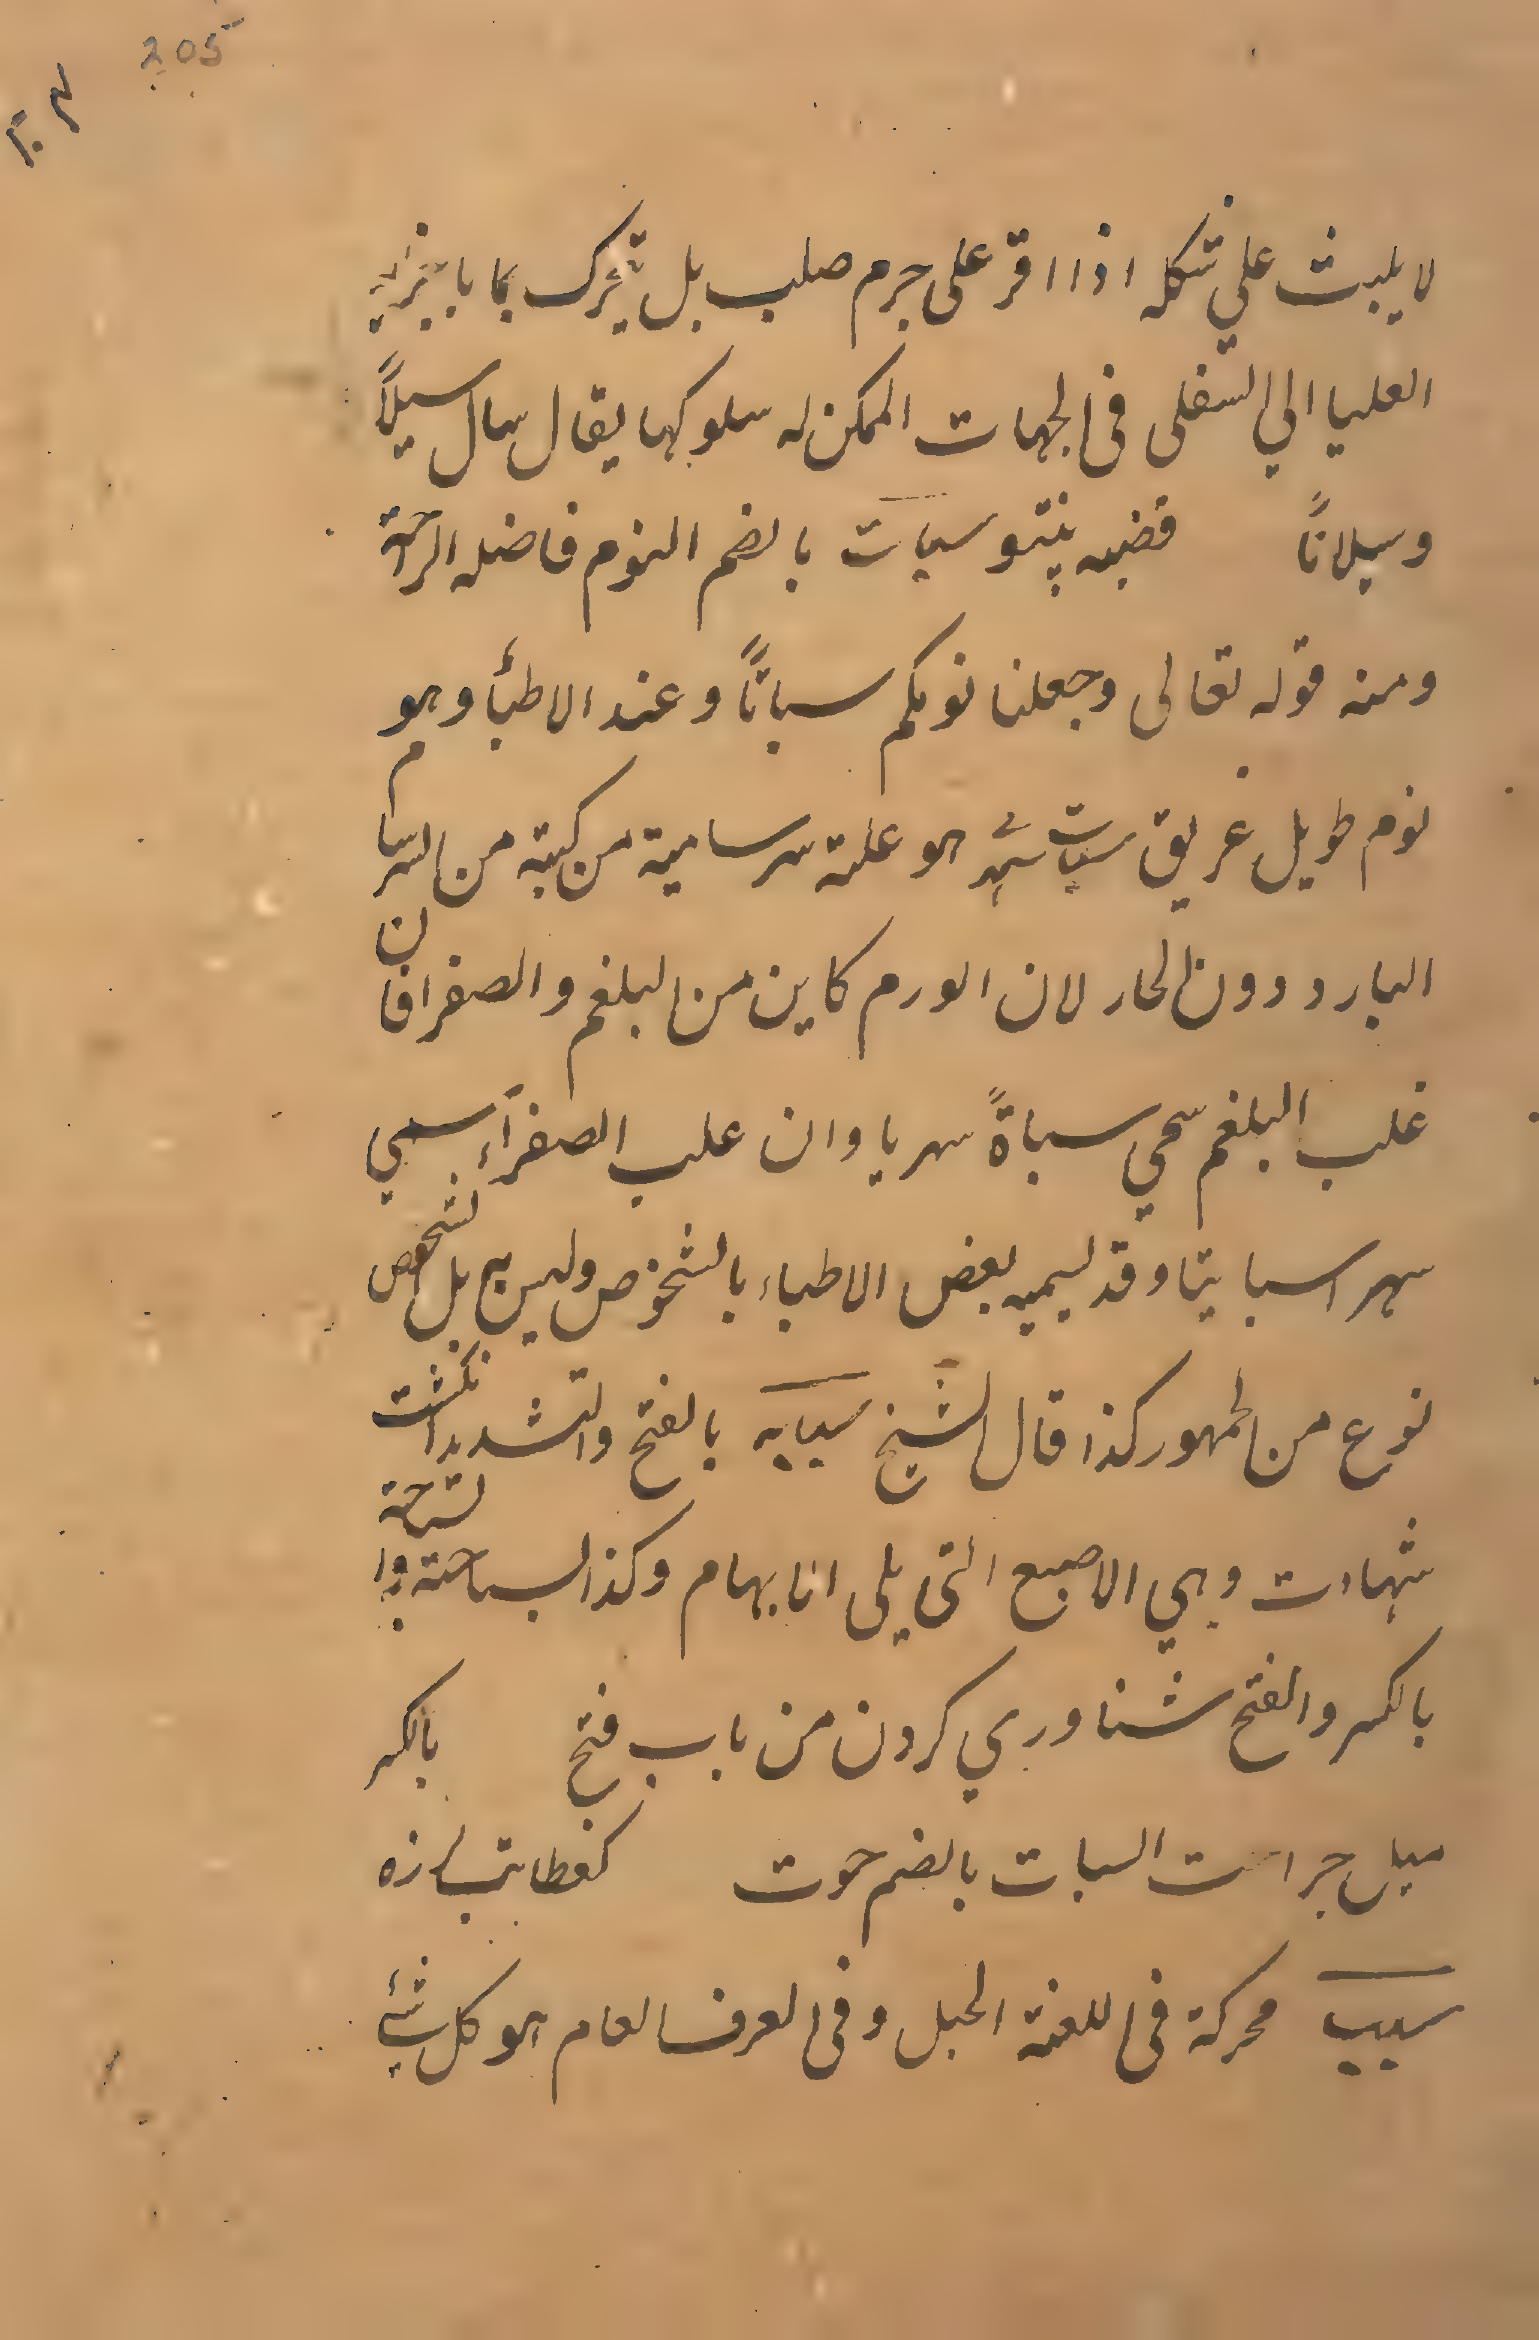 205
٢٠٤
لا يلبث علي شكله اذا اقر على جرم صلب بل يتحرك بما با
العليا الي السفلى فى الجهات الممكن له سلوكها يقال سال سيلاً
وسيلاناً قضبه پنتو سبات بالضم النوم فاضله الراحة
ومنه قوله تعالى وجعلنا نومكم سباتاً وعند الاطبأ وهو
نوم طويل غريق سبات سهر هو علة سرسامية مركبة من السرسام
البارد دون الحار لان الورم كاين من البلغم والصفرا فان
غلب البلغم سمي سباةً سهريا وان علب الصفرآء سمي
سهرا سباتيا وقد يسميه بعض الاطباء بالشخوص وليس به بل الشخوص
نوع من الجمهور كذا قال الشيخ سبابه بالفتح والتشديد انكشت
شهادت وهي الاصبع التى يلى انابهام وكذا السباحة
بالكسر والفتح شناوري كردن من باب فتح بالكسر
ميل جراحت السبات بالضم حوت كغطا
سبب محركة فى اللغة الحبل وفى العرف العام هو كل شئ